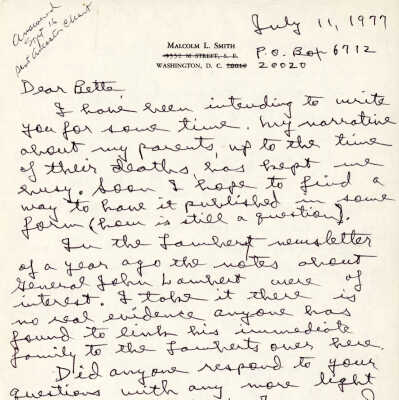 Answered
Sept 16
sent Ancestor Chart
July 11, 1977
MALCOLM L. SMITH
4332 M STREET, S. E.
WASHINGTON, D. C. 20019
P.O. Box 6712
20020
Dear Bette,
I have been intending to write
you for some time. My narrative
about my parents, up to the time
of their deaths, has kept me
busy. Soon I hope to find a
way to have it published in some
form (how is still a question).
In the Lambert newsletter
of a year ago the notes about
General John Lambert were of
interest. I take it there is
no real evidence anyone has
found to link his immediate
family to the Lamberts over here.
Did anyone respond to your
questions with any more light